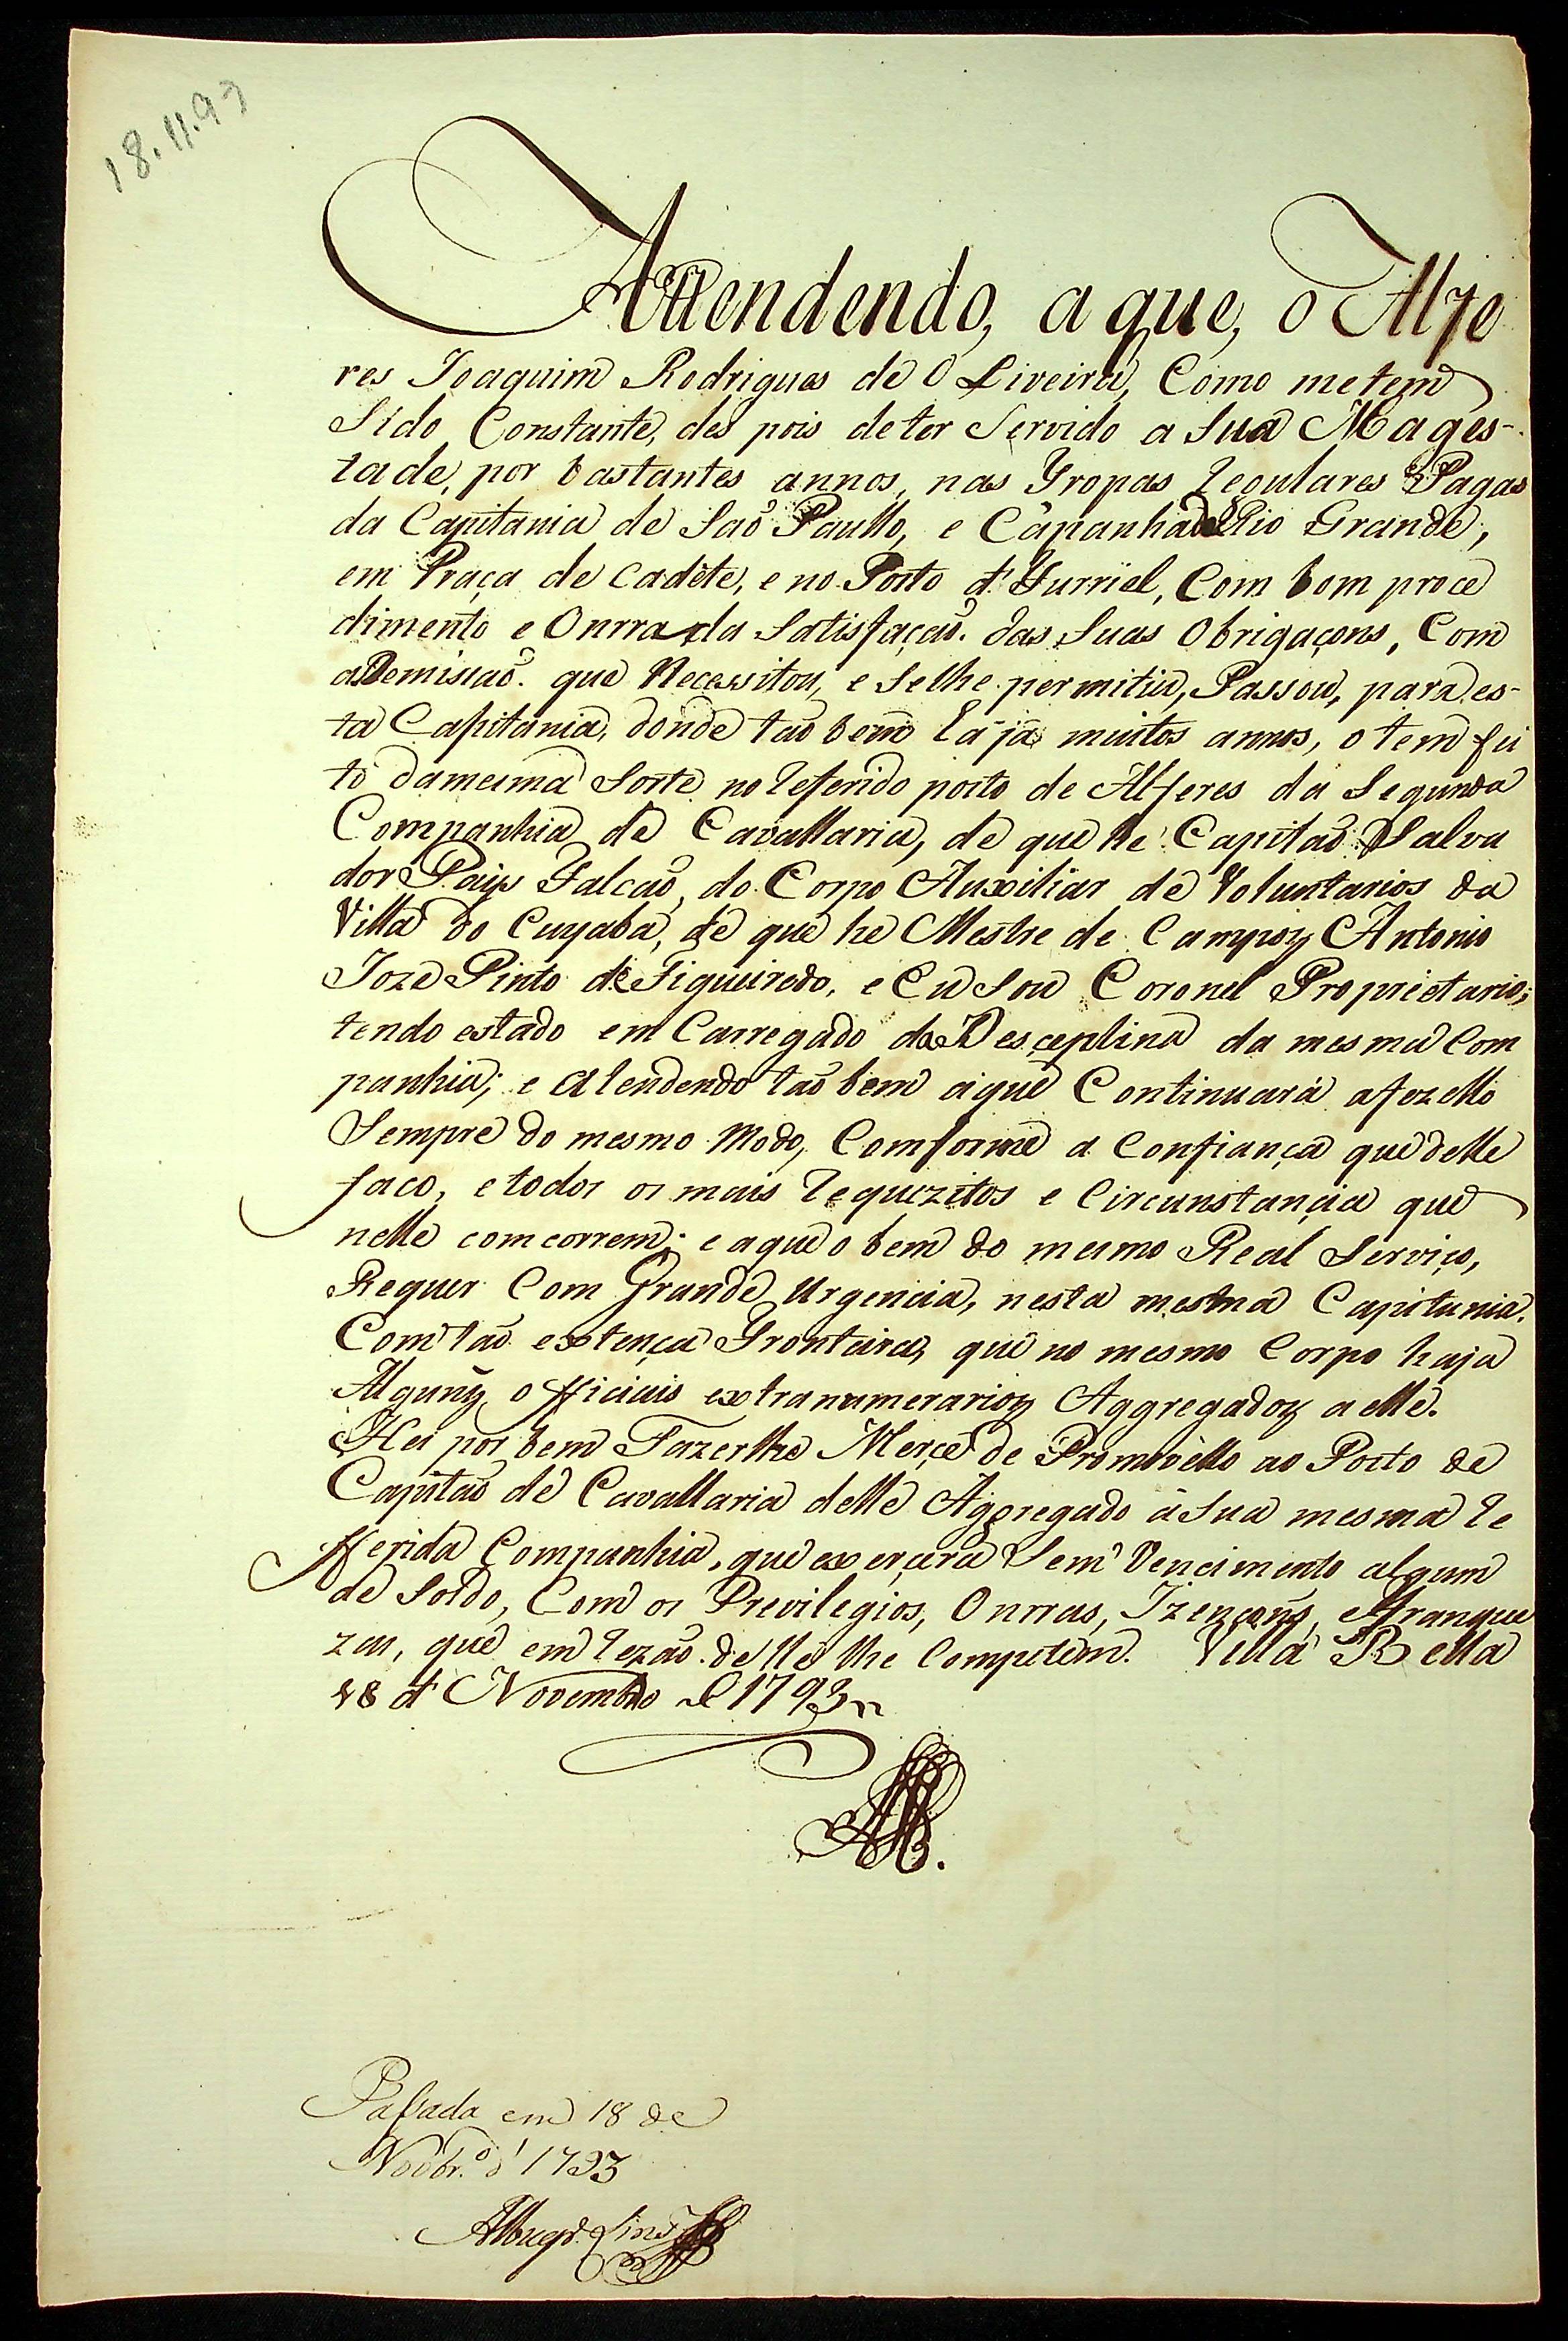 18.11.93
Attendendo, a que, o Alfe
res Joaquim Rodrigues de OLiveira, Como metem
Sido Constante, des pois deter Servido a Sua Mages-
tade, por bastantes annos, nas Tropas Regulares Pagas
da Capitania de Saõ Paullo, e Cãpanha do Rio Grande,
em Praça de Cadête, e no Posto d' Furriel, Com bom proce
dimento e Onrrada Satisfaçaõ. das Suas Obrigaçons, Com
a Demissaõ. que Necessitou, e Selhe permitiu, Passou, para es-
ta Capitania, donde taõ bem há já muitos annos, o tem fei
to damesma Sorte no Referido posto de Alferes da Segunda
Companhia de Cavallaria, de que he Capitaõ Salva
dor Pais Falcaõ, do Corpo Auxiliar de Voluntarios da
Villa do Cuyaba, de que he Mestre de Campo Antonio
Joze Pinto de Figueiredo, e Eu Sou Coronel Proprietario;
tendo estado em Carregado da Desceplina da mesma Com
panhia; e Atendendo taõ bem aque Continuará afazello
Sempre do mesmo Modo, Comforme a Confiança que delle
faco, e todos os mais Requezitos e Circunstançia que
nelle comcorrem; e aque o bem do mesmo Real Serviço,
Requer Com Grande Urgencia, nesta mesma Capitania.
Com taõ extença Fronteira, que no mesmo Corpo haja
Alguns, officiais extranumerarios Aggregados a elle.
Hei por bem Fazerlhe Merçe de Promovêllo ao Posto de
Capitaõ de Cavallaria delle Aggregado á Sua mesma Re
fferida Companhia, que exerçera Sem Vencimento algum
de Soldo, Com os Previlegios, Onrras, Izençoñs, e Franque
zas, que em Rezaõ. delle lhe Competem. Villa Bella
18 d' Novembro de 1793
Passada em 18 de
Novbr.º d' 1793
Albuqr.